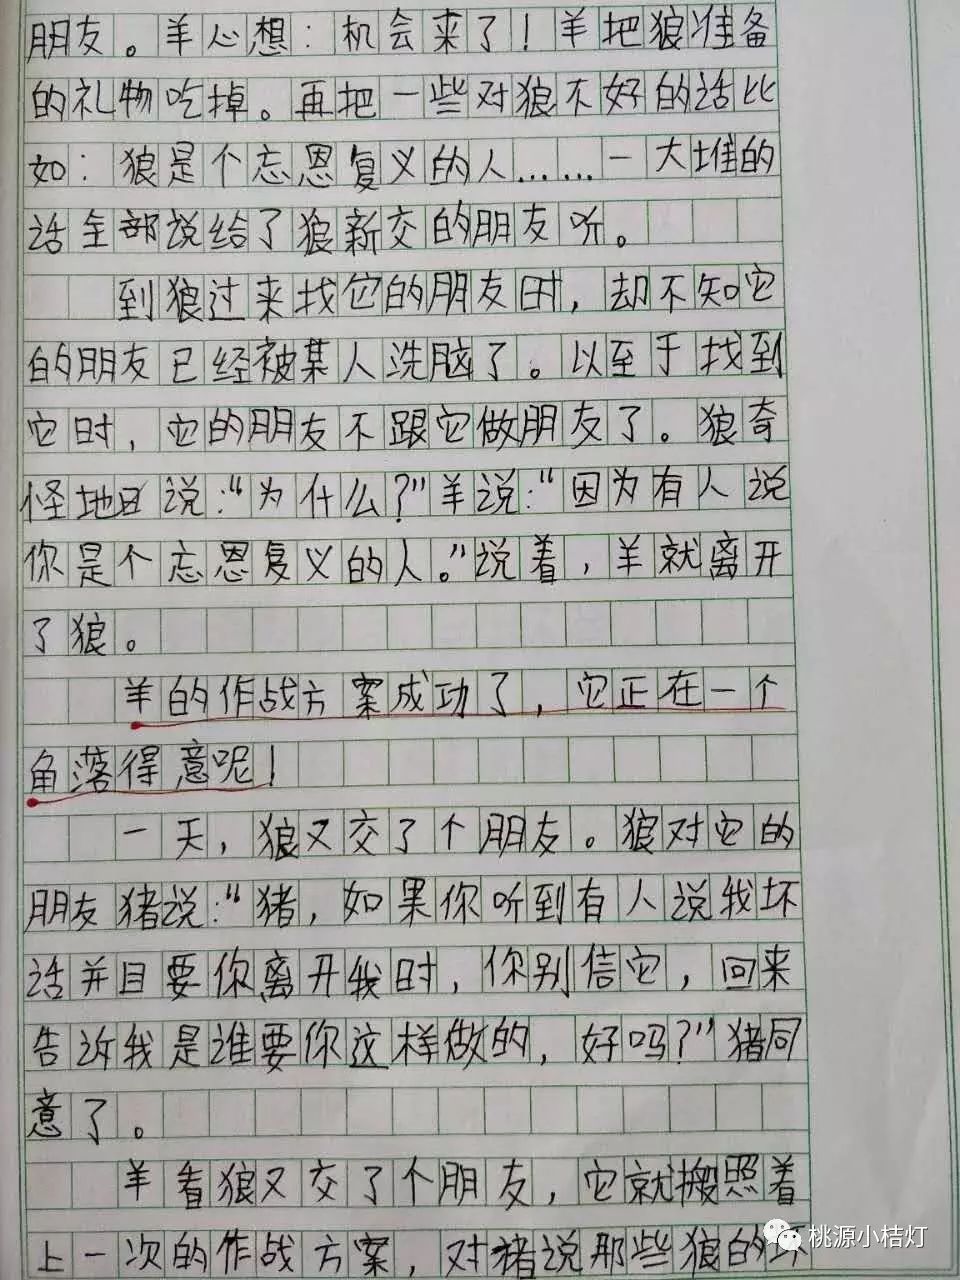 朋友。羊心想：机会来了！羊把狼准备
的礼物吃掉。再把一些对狼不好的话比
如：狼是个忘恩复义的人……一大堆的
话全部说给了狼新交的朋友听。
到狼过来找它的朋友时，却不知它
的朋友已经被某人洗脑了。以至于找到
它时，它的朋友不跟它做朋友了。狼奇
怪地日说：“为什么？”羊说：“因为有人说
你是个忘恩复义的人。”说着，羊就离开
了狼。
羊的作战方案成功了，它正在一个
角落得意呢！
一天，狼又交了个朋友。狼对它的
朋友猪说：“猪，如果你听到有人说我坏
话并目要你离开我时，你别信它，回来
告诉我是谁要你这样做的，好吗？”猪同
意了。
羊看狼又交了个朋友，它就搬照着
上一次的作战方案，对猪说那些狼的坏
桃源小桔灯